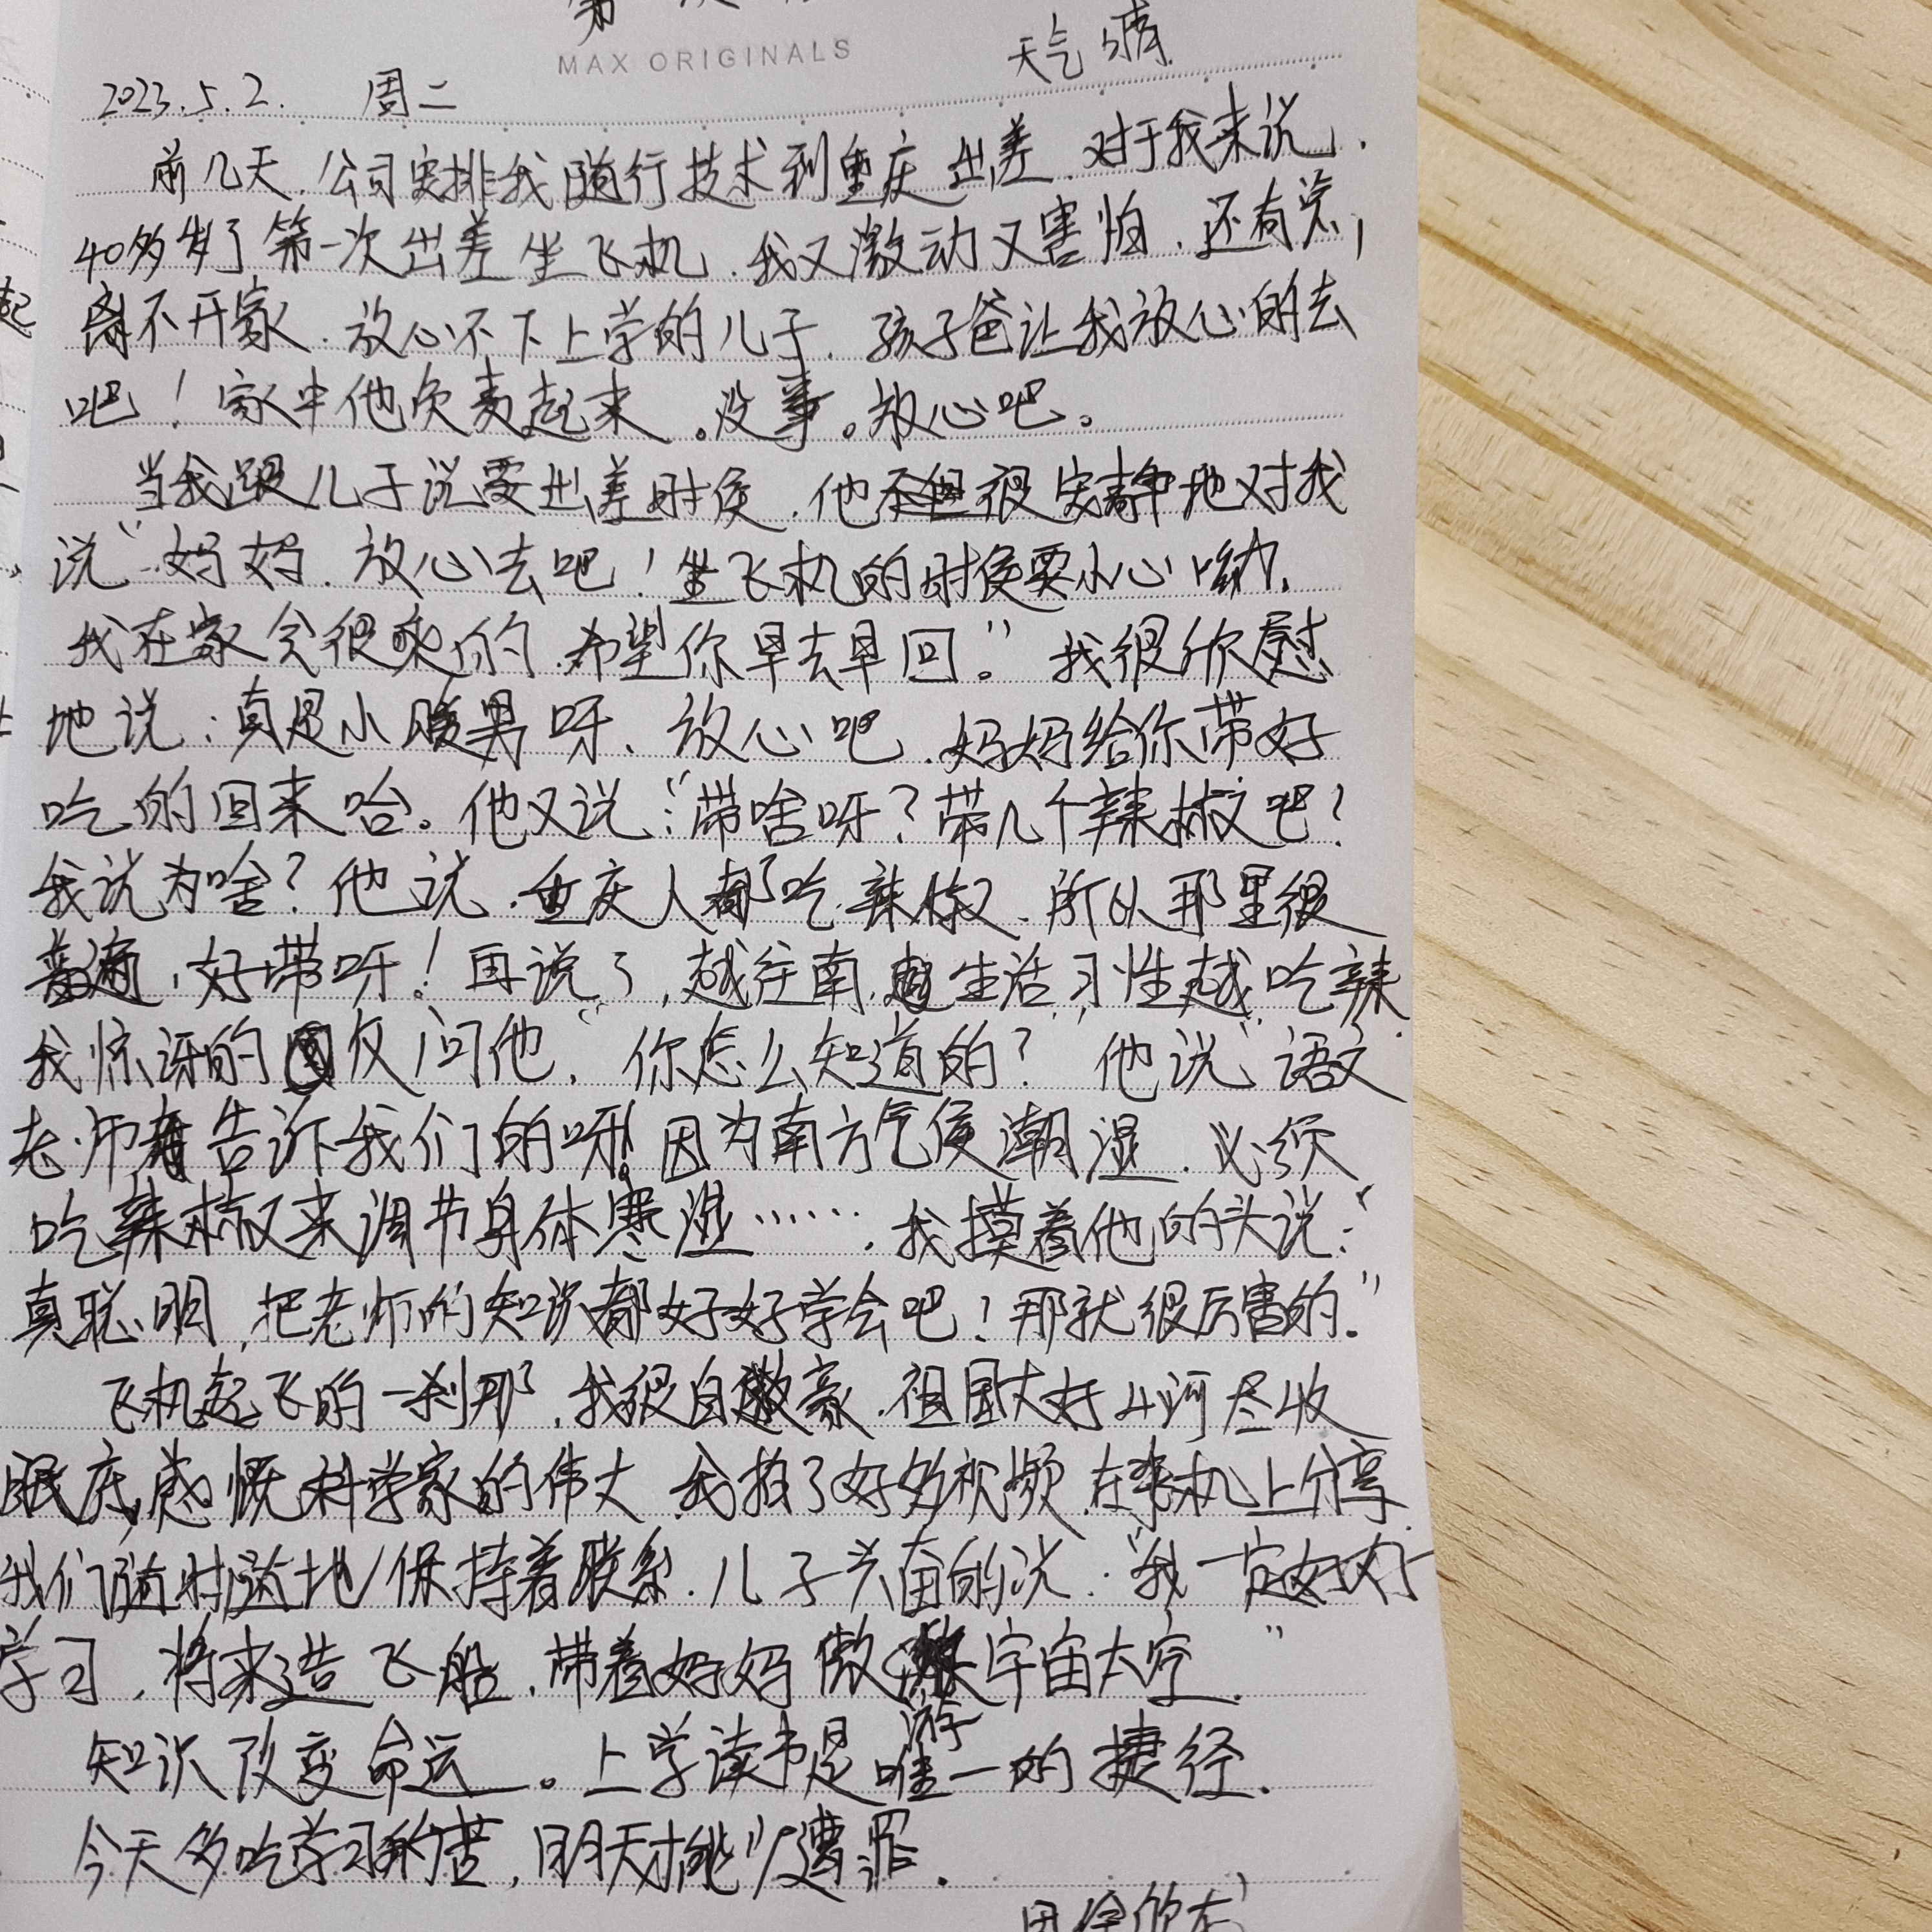 第一次
MAX ORIGINALS
天气 晴
2023.5.2. 周二
前几天,公司安排我随行技术到重庆出差.对于我来说.
40多岁了第一次出差坐飞机.我又激动又害怕.还有点,
离不开家.放心不下上学的儿子.孩子爸让我放心的去
吧!家中他负责起来。没事。放心吧。
当我跟儿子说要出差时侯.他很安静地对我
说"妈妈.放心去吧!坐飞机的时侯要小心呦.
我在家会很乖的.希望你早去早回。"我很欣慰
地说:真是小暖男呀、放心吧.妈妈给你带好
吃的回来哈。他又说:"带啥呀?带几个辣椒吧?
我说为啥?他说.重庆人都吃辣椒.所以那里很
普遍,好带呀!再说了,越往南,生活习性越吃辣.
我惊讶的反问他,"你怎么知道的?"他说"语文
老师告诉我们的呀!因为南方气侯潮湿.必须
吃辣椒来调节身体寒湿…….我摸着他的头说:"
真聪明,把老师的知识都好好学会吧!那就很厉害的."
飞机起飞的一刹那,我很自豪.祖国大好山河尽收
眼底,感慨科学家的伟大.我拍了好多视频.在手机上分享.
我们随时随地保持着联系.儿子兴奋的说:"我一定好好
学习,将来造飞船,带着妈妈傲游宇宙太空."
知识改变命运。上学读书是唯一的捷径.
今天多吃学习的苦,明天才能少遭罪.